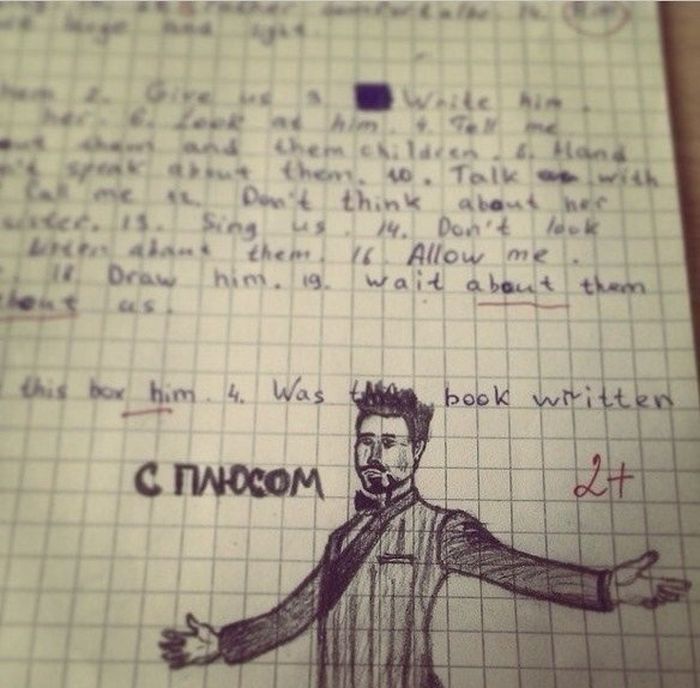 large and light.
2. Give us 3. Write him.
her. 6. Look at him. 7. Tell me
them and them children. 8. Hand
speak about them. 10. Talk with
Call me 12. Don't think about her
13. Sing us. 14. Don't look
Listen about them. 16. Allow me.
18. Draw him. 19. wait about them
about us.
this box him. 4. Was book written
С ПЛЮСОМ
2+